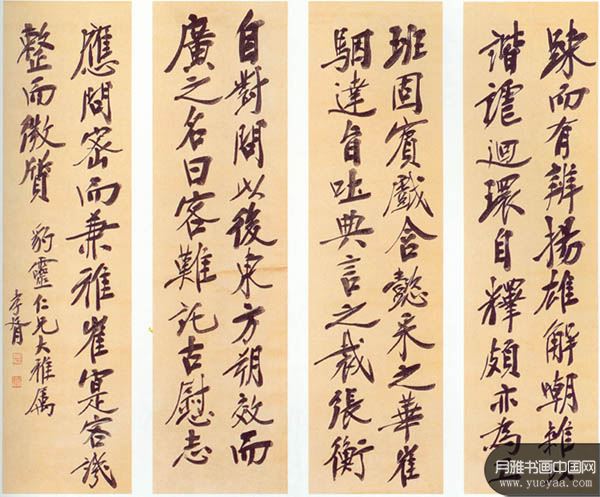 踈而有辨揚雄解嘲雜以
諧謔迴環自釋頗亦為工
班固賓戲含懿采之華崔
駰達旨吐典言之裁張衡
自對問以後東方朔效而
廣之名曰客難託古慰志
應問密而兼雅崔寔客譏
整而微質
豹靈仁兄大雅属
孝胥
月雅书画中国网
www.yueyaa.com